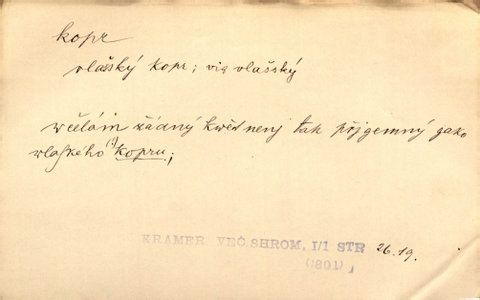 kopr
vlašský kopr; viz vlašský
wčelám žádný kwět nenj tak přjgemný gako
vlaſkého (!) kopru;
KRAMER. VEČ. SHROM. I/1 STR 26.19.
(1801)